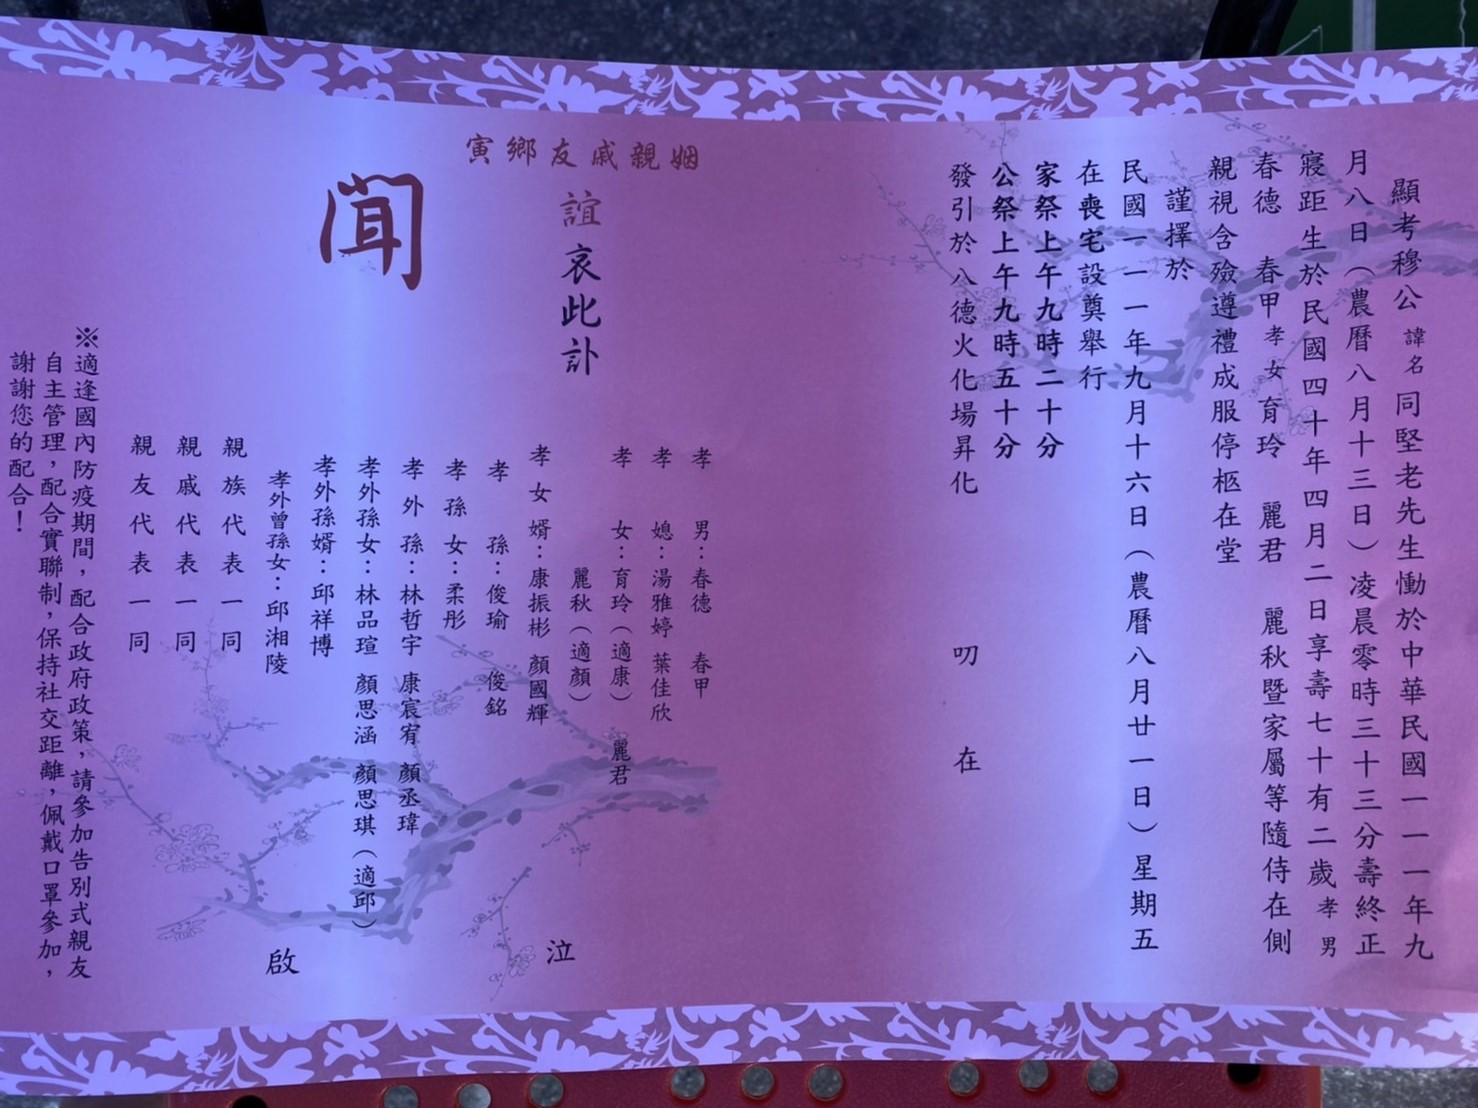 顯考穆公諱名同堅老先生慟於中華民國一一一年九
月八日（農曆八月十三日）凌晨零時三十三分壽終正
寢距生於民國四十年四月二日享壽七十有二歲孝男
春德 春甲孝女育玲 麗君 麗秋暨家屬等隨侍在側
親視含殮遵禮成服停柩在堂
謹擇於
民國一一一年九月十六日（農曆八月廿一日）星期五
在喪宅設奠舉行
家祭上午九時二十分
公祭上午九時五十分
發引於八德火化場昇化
叨在
姻親戚友鄉寅
誼哀此訃
聞
孝男：春德 春甲
孝媳：湯雅婷 葉佳欣
孝女：育玲（適康） 麗君
麗秋（適顏）
孝女婿：康振彬 顏國輝
孝孫：俊瑜 俊銘
孝孫女：柔彤
孝外孫：林哲宇 康宸宥 顏丞瑋
孝外孫女：林品瑄 顏思涵 顏思琪（適邱）
孝外孫婿：邱祥博
孝外曾孫女：邱湘陵
親族代表一同
親戚代表一同
親友代表一同
泣
啟
※適逢國內防疫期間，配合政府政策，請參加告別式親友
自主管理，配合實聯制，保持社交距離，佩戴口罩參加，
謝謝您的配合！